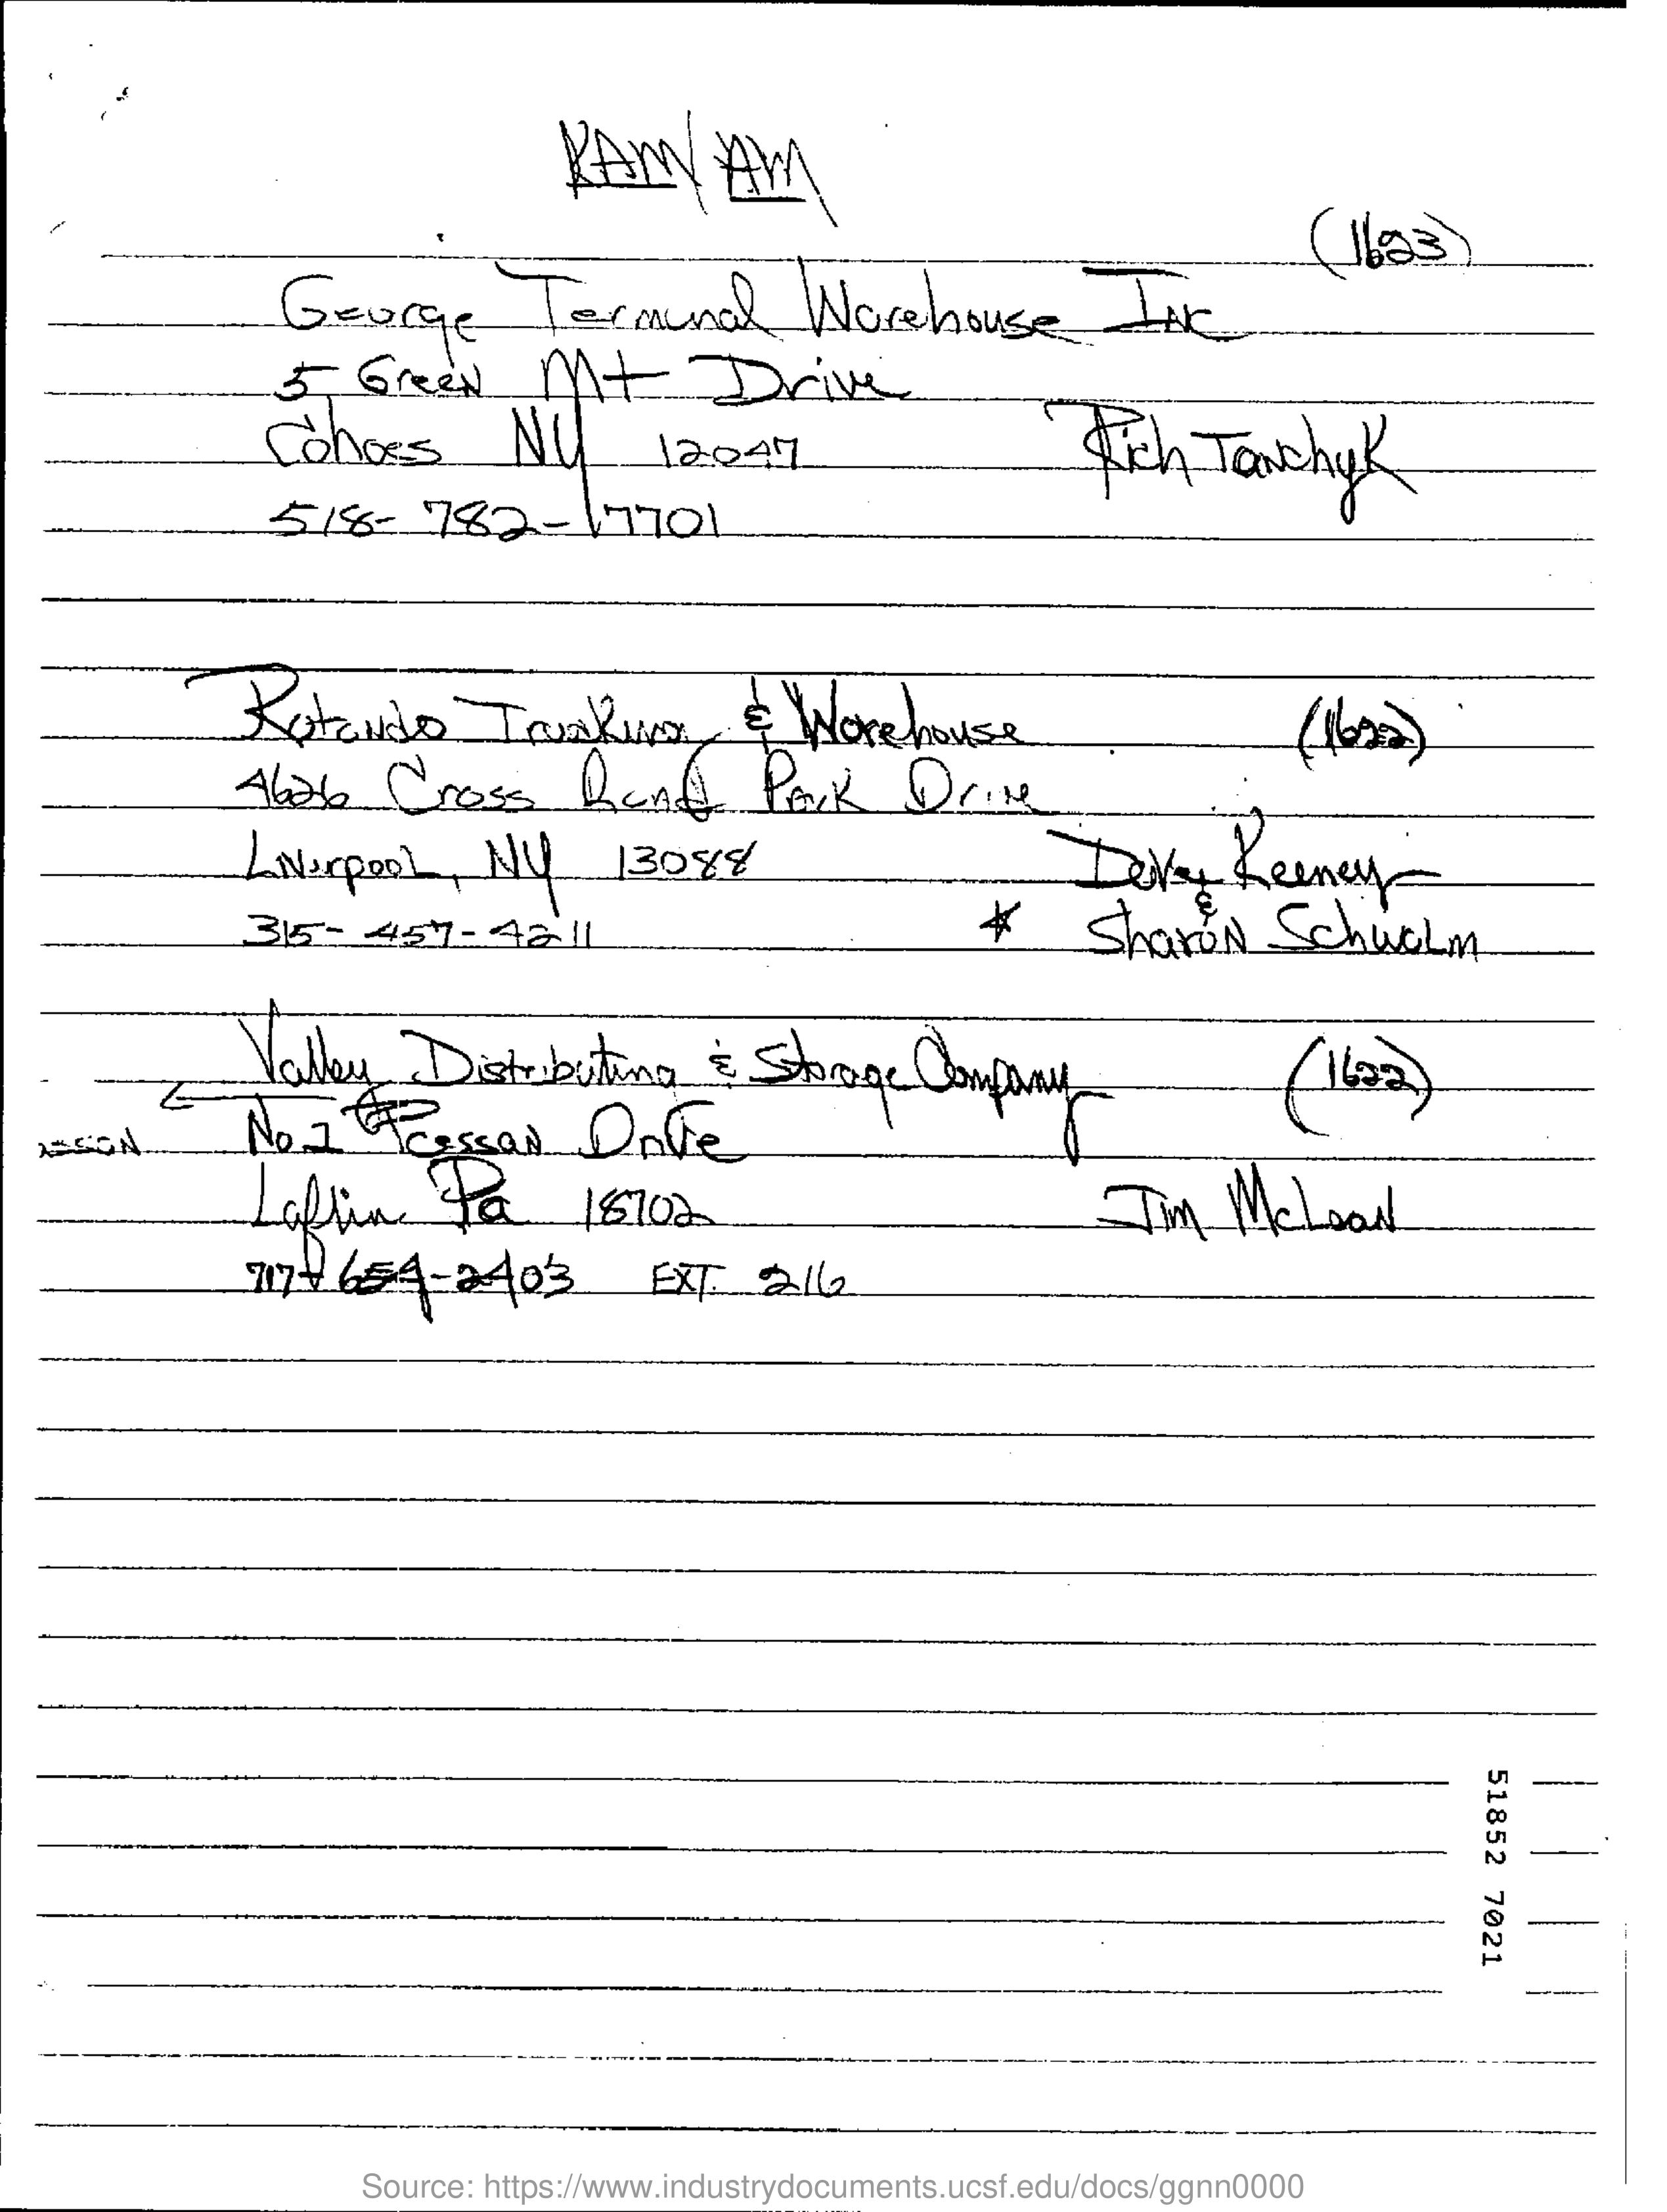 KAM/AM
(1623)
George Terminal Warehouse INC
5 Green Mt Drive
Cohoes NY 12047 Rich Tanchyk
518-782-7701
Rotondo Trucking & Warehouse (1622)
4626 Cross Park Drive
Liverpool, NY 13088 Keeney
315-457-4211 * & Sharon Schwalm
Valley Distributing & Storage Company (1622)
No 1 Drive
Laflin Pa 18702 Jim McLean
717-654-2403 EXT. 216
51852 7021
Source: https://www.industrydocuments.ucsf.edu/docs/ggnn0000